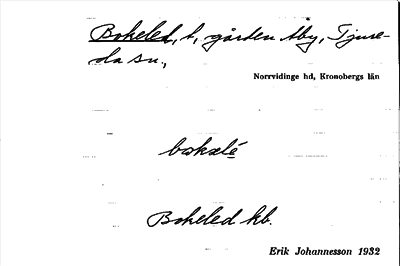 Bokeled, t, gården Aby, Tjure-
da sn.,
Norrvidinge hd, Kronobergs län
bokəlé
Bokeled kb.
Erik Johannesson 1932